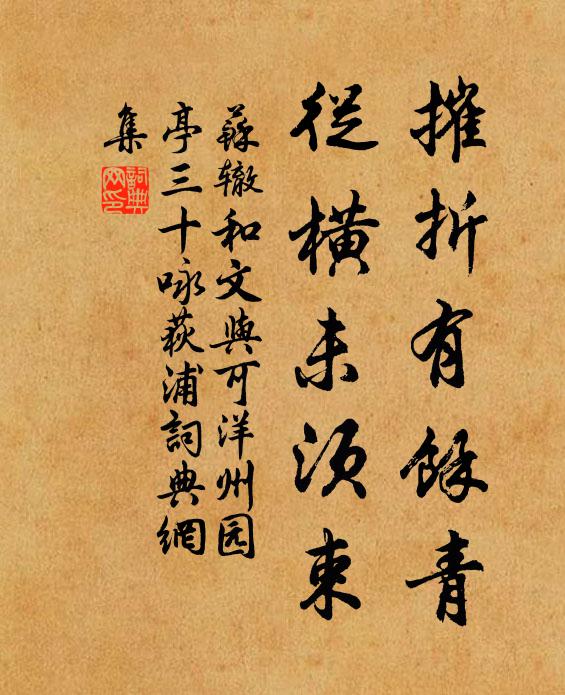 摧折有餘青
從橫未須束
蘇辙和文與可洋州园
亭三十咏荻浦詞典網
集
詞典
网印